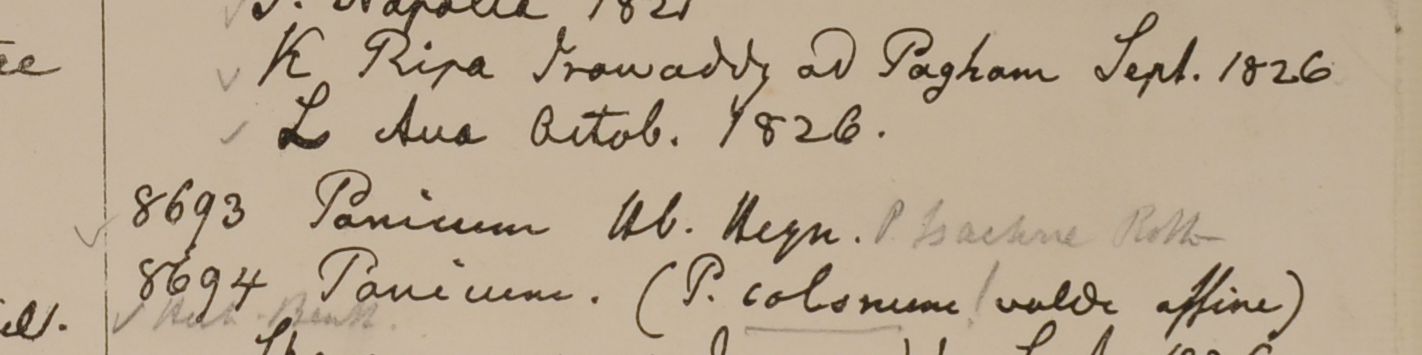 J. Napalia 1821
K Ripa Irawaddy ad Pagham Sept. 1826
L Ava Octob. 1826.
8693 Panicum Hb. Heyn. P. Isachne Roth
8694 Panicum. (P. colonum! valde affine)
Herb. Benth.